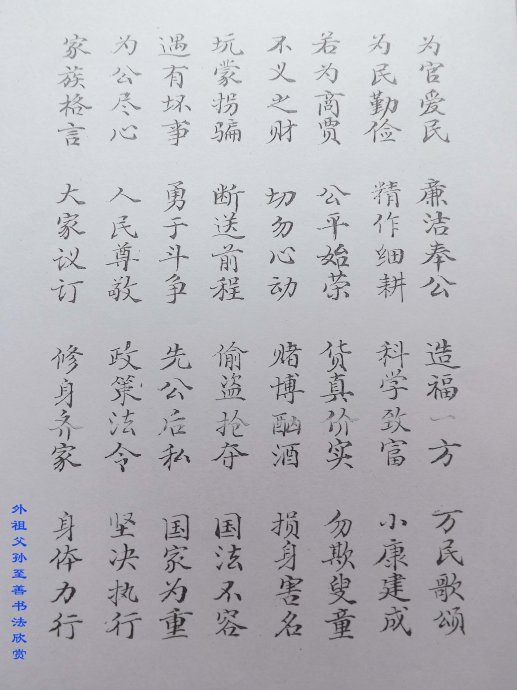 为官爱民 廉洁奉公 造福一方 万民歌颂
为民勤俭 精作细耕 科学致富 小康建成
若为商贾 公平始荣 货真价实 勿欺叟童
不义之财 切勿心动 赌博酗酒 损身害名
坑蒙拐骗 断送前程 偷盗抢夺 国法不容
遇有坏事 勇于斗争 先公后私 国家为重
为公尽心 人民尊敬 政策法令 坚决执行
家族格言 大家议订 修身齐家 身体力行
外祖父孙至善书法欣赏